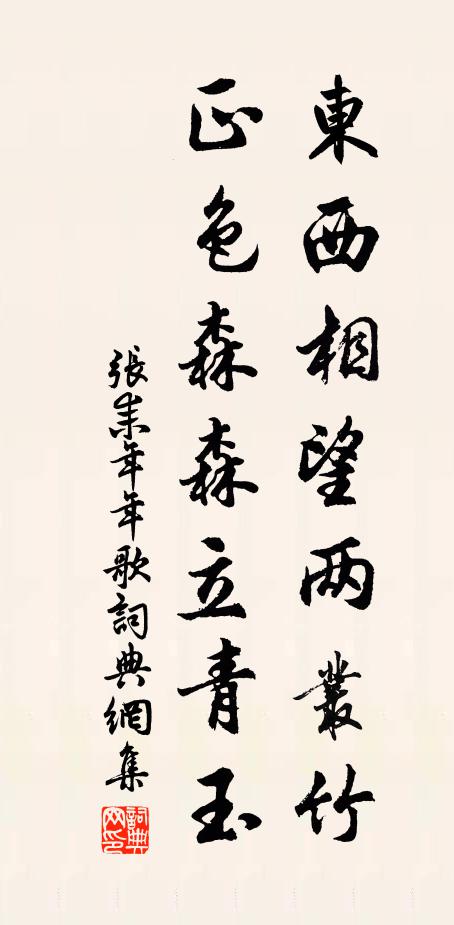 東西相望两叢竹
正色森森立青玉
張耒年年歌詞典網集
詞典网印